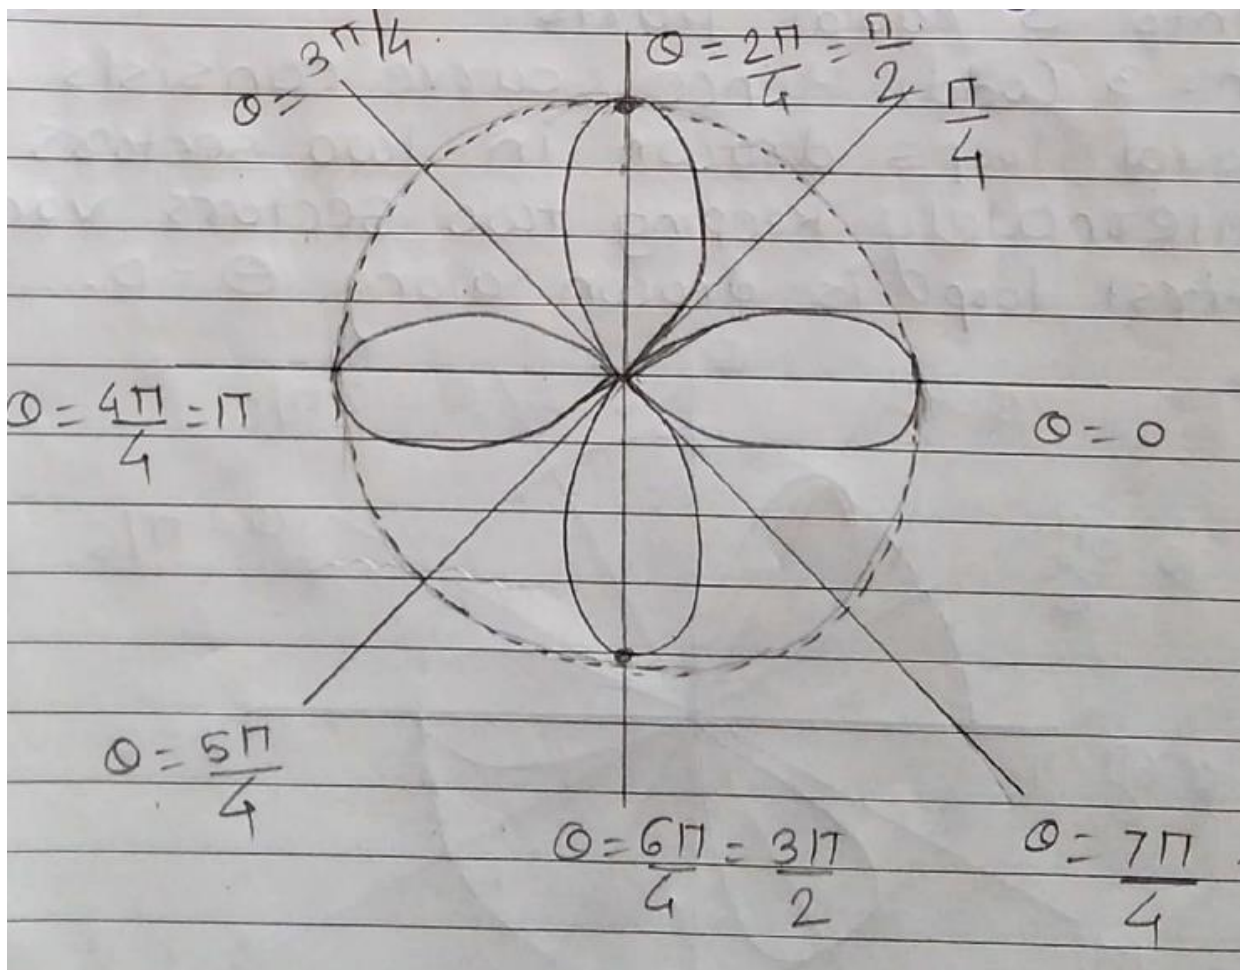 θ = 3π/4
θ = 2π/4 = π/2
π/4
θ = 4π/4 = π
θ = 0
θ = 5π/4
θ = 6π/4 = 3π/2
θ = 7π/4